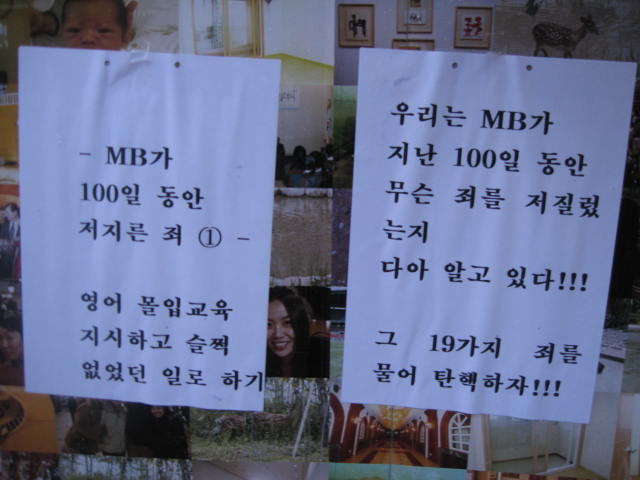 - MB가
100일 동안
저지른 죄 ① -
영어 몰입교육
지시하고 슬쩍
없었던 일로 하기
우리는 MB가
지난 100일 동안
무슨 죄를 저질렀
는지
다아 알고 있다!!!
그 19가지 죄를
물어 탄핵하자!!!